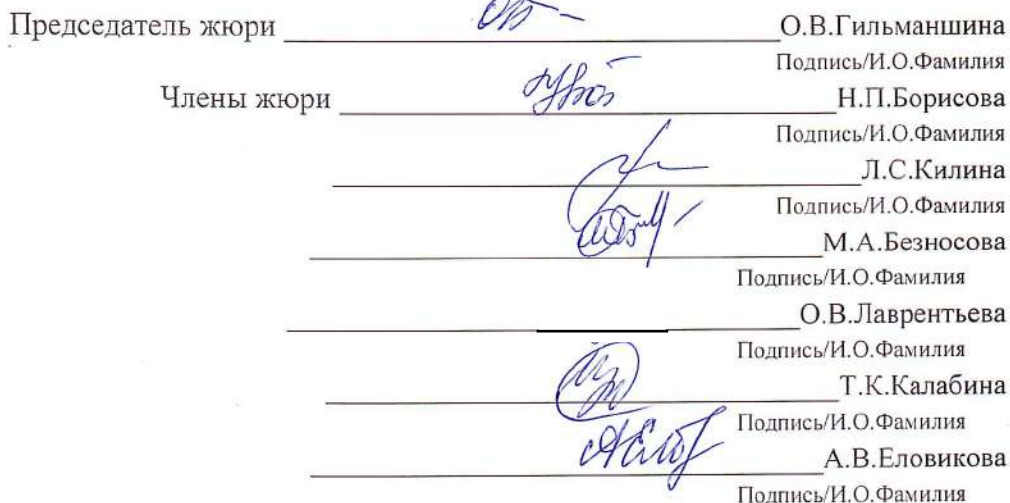 Председатель жюри О.В.Гильманшина
Подпись/И.О.Фамилия
Члены жюри Н.П.Борисова
Подпись/И.О.Фамилия
Л.С.Килина
Подпись/И.О.Фамилия
М.А.Безносова
Подпись/И.О.Фамилия
О.В.Лаврентьева
Подпись/И.О.Фамилия
Т.К.Калабина
Подпись/И.О.Фамилия
А.В.Еловикова
Подпись/И.О.Фамилия